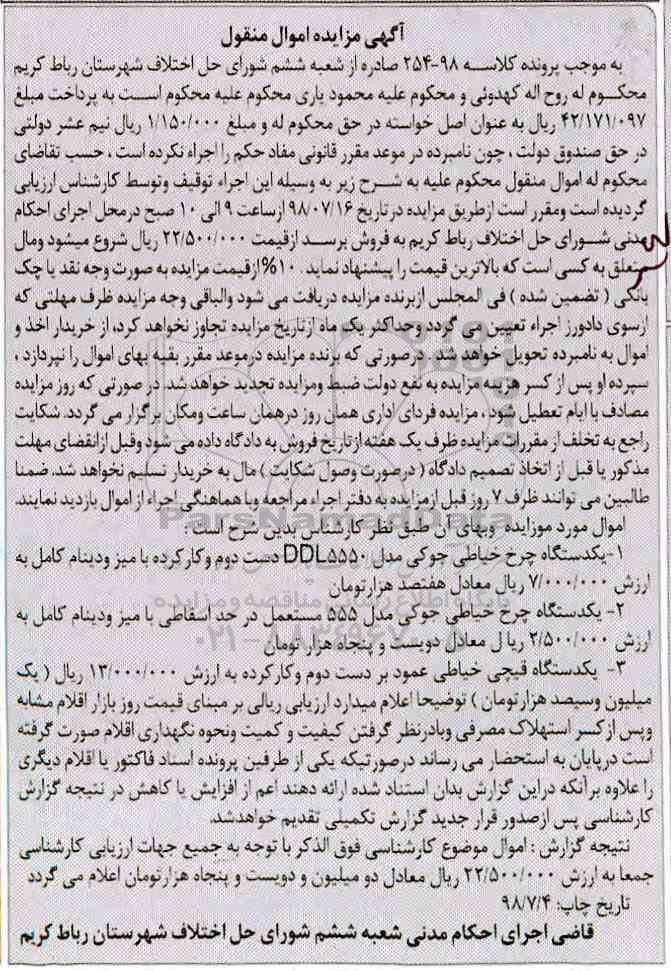 آگهی مزایده اموال منقول
به موجب پرونده کلاسه ۹۸-۲۵۴ صادره از شعبه ششم شورای حل اختلاف شهرستان رباط کریم
محکوم له روح اله کهدوئی و محکوم علیه محمود یاری محکوم علیه محکوم است به پرداخت مبلغ
۴۲/۱۷۱/۰۹۷ ریال به عنوان اصل خواسته در حق محکوم له و مبلغ ۱/۱۵۰/۰۰۰ ریال نیم عشر دولتی
در حق صندوق دولت ، چون نامبرده در موعد مقرر قانونی مفاد حکم را اجراء نکرده است ، حسب تقاضای
محکوم له اموال منقول محکوم علیه به شرح زیر به وسیله این اجراء توقیف وتوسط کارشناس ارزیابی
گردیده است ومقرر است ازطریق مزایده درتاریخ ۹۸/۰۷/۱۶ ازساعت ۹ الی ۱۰ صبح درمحل اجرای احکام
مدنی شورای حل اختلاف رباط کریم به فروش برسد ازقیمت ۲۲/۵۰۰/۰۰۰ ریال شروع میشود ومال
متعلق به کسی است که بالاترین قیمت را پیشنهاد نماید . ۱۰% ازقیمت مزایده به صورت وجه نقد یا چک
بانکی ( تضمین شده ) فی المجلس ازبرنده مزایده دریافت می شود والباقی وجه مزایده ظرف مهلتی که
ازسوی دادورز اجراء تعیین می گردد وحداکثر یک ماه ازتاریخ مزایده تجاوز نخواهد کرد، از خریدار اخذ و
اموال به نامبرده تحویل خواهد شد . درصورتی که برنده مزایده درموعد مقرر بقیه بهای اموال را نپردازد ،
سپرده او پس از کسر هزینه مزایده به نفع دولت ضبط ومزایده تجدید خواهد شد. در صورتی که روز مزایده
مصادف با ایام تعطیل شود ، مزایده فردای اداری همان روز درهمان ساعت ومکان برگزار می گردد. شکایت
راجع به تخلف از مقررات مزایده ظرف یک هفته ازتاریخ فروش به دادگاه داده می شود وقبل ازانقضای مهلت
مذکور یا قبل از اتخاذ تصمیم دادگاه ( درصورت وصول شکایت ) مال به خریدار تسلیم نخواهد شد. ضمنا
طالبین می توانند ظرف ۷ روز قبل ازمزایده به دفتر اجراء مراجعه وبا هماهنگی اجراء از اموال بازدید نمایند.
اموال مورد موزایده وبهای آن طبق نظر کارشناس بدین شرح است :
۱-یکدستگاه چرخ خیاطی جوکی مدل DDL۵۵۵۰ دست دوم وکارکرده با میز ودینام کامل به
ارزش ۷/۰۰۰/۰۰۰ ریال معادل هفتصد هزارتومان
۲- یکدستگاه چرخ خیاطی جوکی مدل ۵۵۵ مستعمل در حد اسقاطی با میز ودینام کامل به
ارزش ۲/۵۰۰/۰۰۰ ریا ل معادل دویست و پنجاه هزار تومان
۳- یکدستگاه قیچی خیاطی عمود بر دست دوم وکارکرده به ارزش ۱۳/۰۰۰/۰۰۰ ریال ( یک
میلیون وسیصد هزارتومان ) توضیحا اعلام میدارد ارزیابی ریالی بر مبنای قیمت روز بازار اقلام مشابه
وپس ازکسر استهلاک مصرفی وبادرنظر گرفتن کیفیت و کمیت ونحوه نگهداری اقلام صورت گرفته
است درپایان به استحضار می رساند درصورتیکه یکی از طرفین پرونده اسناد فاکتور یا اقلام دیگری
را علاوه برآنکه دراین گزارش بدان استناد شده ارائه دهند اعم از افزایش یا کاهش در نتیجه گزارش
کارشناسی پس ازصدور قرار جدید گزارش تکمیلی تقدیم خواهدشد.
نتیجه گزارش : اموال موضوع کارشناسی فوق الذکر با توجه به جمیع جهات ارزیابی کارشناسی
جمعا به ارزش ۲۲/۵۰۰/۰۰۰ ریال معادل دو میلیون و دویست و پنجاه هزارتومان اعلام می گردد
تاریخ چاپ: ۹۸/۷/۴
قاضی اجرای احکام مدنی شعبه ششم شورای حل اختلاف شهرستان رباط کریم
ParsNamadData
پایگاه اطلاع رسانی مناقصه و مزایده